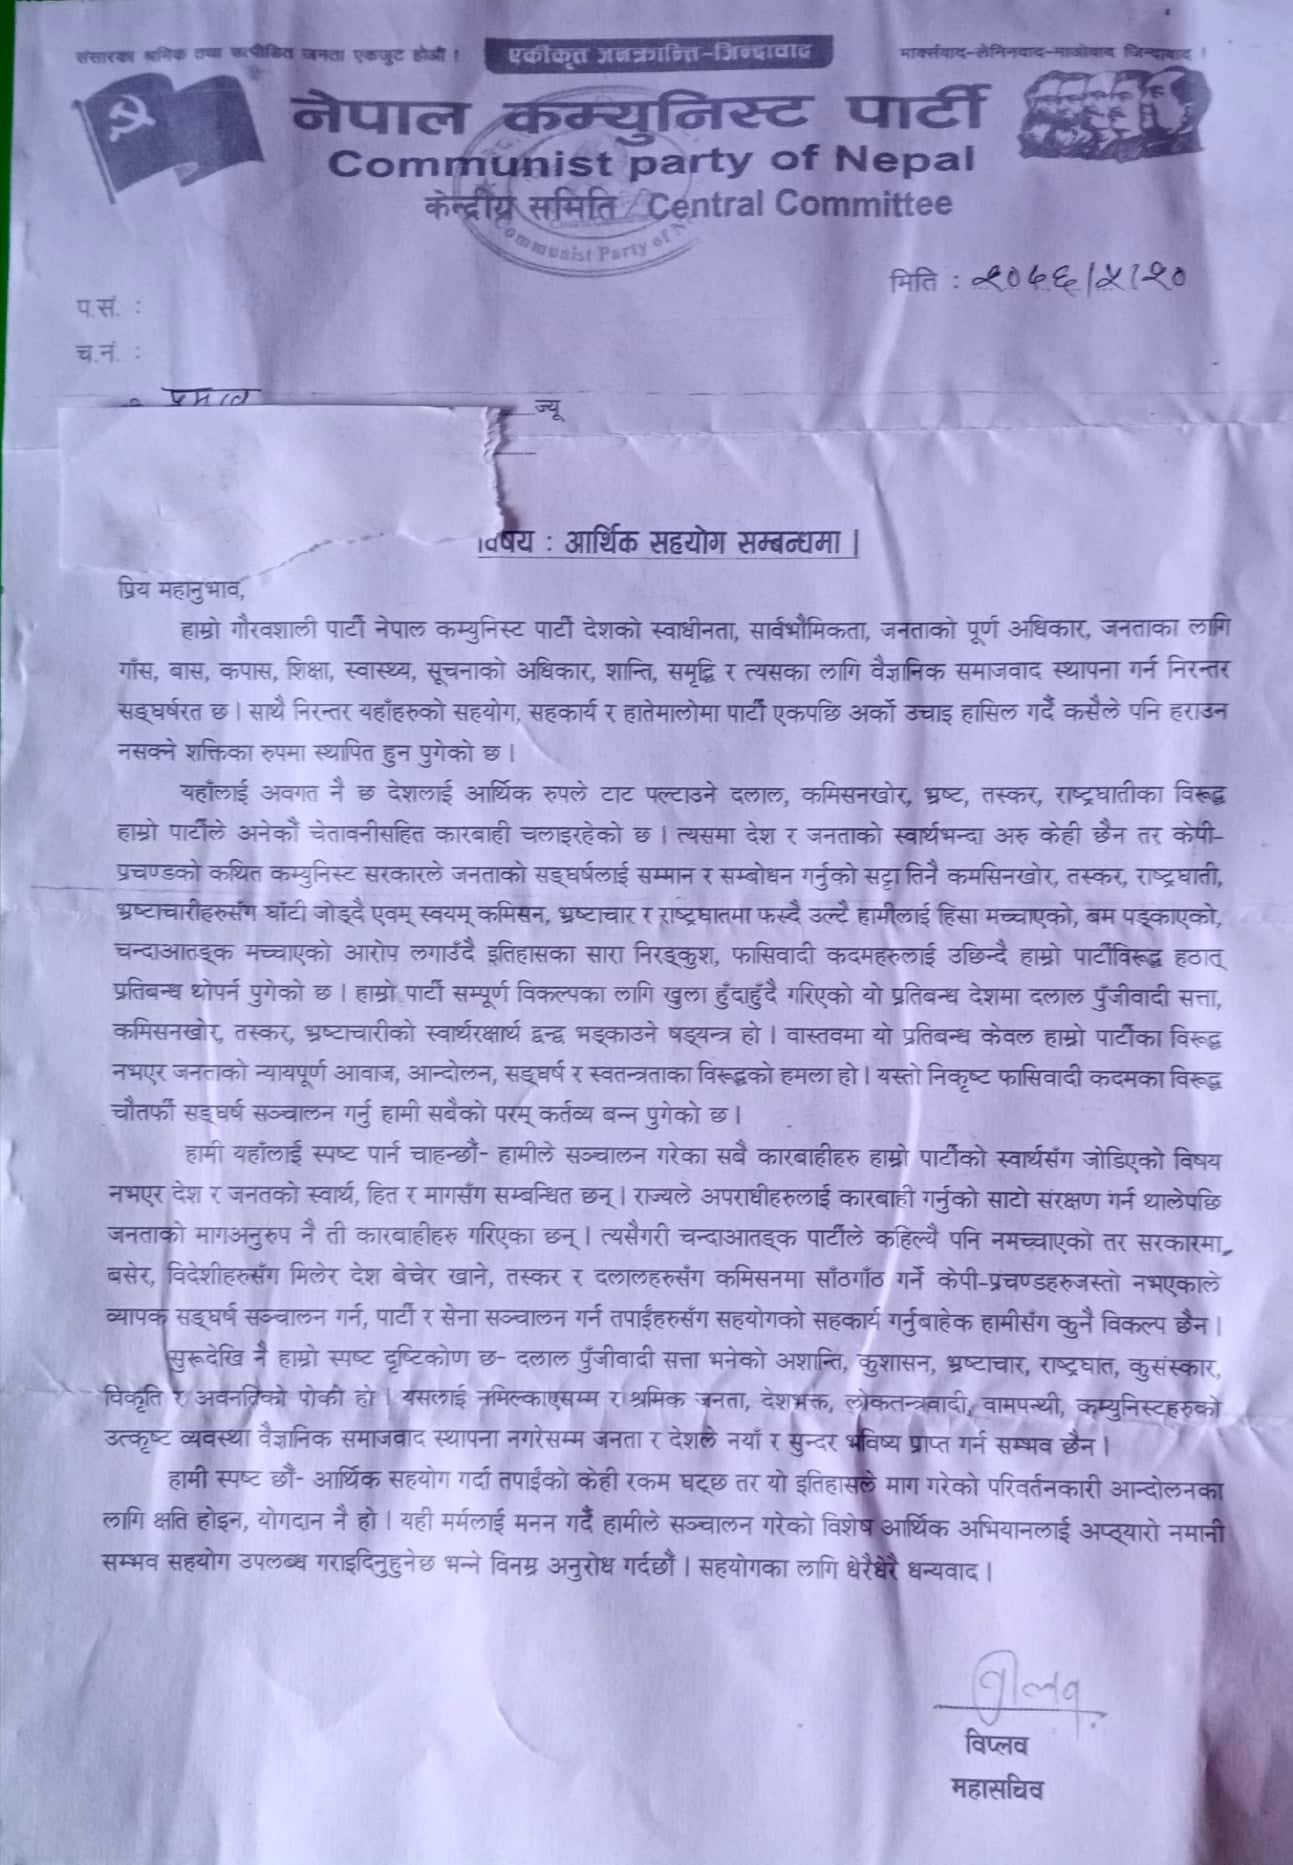 संसारका श्रमिक तथा उत्पीडित जनता एकजुट होऔं !
एकीकृत जनक्रान्ति-जिन्दावाद
मार्क्सवाद-लेनिनवाद-माओवाद जिन्दावाद !
नेपाल कम्युनिस्ट पार्टी
Communist party of Nepal
केन्द्रीय समिति / Central Committee
Communist Party of
मिति : २०७६/५/२०
प.सं. :
च.नं. :
ज्यू
विषय : आर्थिक सहयोग सम्बन्धमा |
प्रिय महानुभाव,
हाम्रो गौरवशाली पार्टी नेपाल कम्युनिस्ट पार्टी देशको स्वाधीनता, सार्वभौमिकता, जनताको पूर्ण अधिकार, जनताका लागि
गाँस, बास, कपास, शिक्षा, स्वास्थ्य, सूचनाको अधिकार, शान्ति, समृद्धि र त्यसका लागि वैज्ञानिक समाजवाद स्थापना गर्न निरन्तर
सङ्घर्षरत छ । साथै निरन्तर यहाँहरुको सहयोग, सहकार्य र हातेमालोमा पार्टी एकपछि अर्को उचाइ हासिल गर्दै कसैले पनि हराउन
नसक्ने शक्तिका रुपमा स्थापित हुन पुगेको छ ।
यहाँलाई अवगत नै छ देशलाई आर्थिक रुपले टाट पल्टाउने दलाल, कमिसनखोर, भ्रष्ट, तस्कर, राष्ट्रघातीका विरूद्ध
हाम्रो पार्टीले अनेकौं चेतावनीसहित कारबाही चलाइरहेको छ । त्यसमा देश र जनताको स्वार्थभन्दा अरु केही छैन तर केपी-
प्रचण्डको कथित कम्युनिस्ट सरकारले जनताको सङ्घर्षलाई सम्मान र सम्बोधन गर्नुको सट्टा तिनै कमसिनखोर, तस्कर, राष्ट्रघाती,
भ्रष्टाचारीहरुसँग घाँटी जोड्दै एवम् स्वयम् कमिसन, भ्रष्टाचार र राष्ट्रघातमा फस्दै उल्टै हामीलाई हिंसा मच्चाएको, बम पड्काएको,
चन्दाआतङ्क मच्चाएको आरोप लगाउँदै इतिहासका सारा निरङ्कुश, फासिवादी कदमहरुलाई उछिन्दै हाम्रो पार्टीविरूद्ध हठात्
प्रतिबन्ध थोपर्न पुगेको छ । हाम्रो पार्टी सम्पूर्ण विकल्पका लागि खुला हुँदाहुँदै गरिएको यो प्रतिबन्ध देशमा दलाल पुँजीवादी सत्ता,
कमिसनखोर, तस्कर, भ्रष्टाचारीको स्वार्थरक्षार्थ द्वन्द्व भड्काउने षड्यन्त्र हो । वास्तवमा यो प्रतिबन्ध केवल हाम्रो पार्टीका विरूद्ध
नभएर जनताको न्यायपूर्ण आवाज, आन्दोलन, सङ्घर्ष र स्वतन्त्रताका विरूद्धको हमला हो । यस्तो निकृष्ट फासिवादी कदमका विरूद्ध
चौतर्फी सङ्घर्ष सञ्चालन गर्नु हामी सबैको परम् कर्तव्य बन्न पुगेको छ ।
हामी यहाँलाई स्पष्ट पार्न चाहन्छौं- हामीले सञ्चालन गरेका सबै कारबाहीहरु हाम्रो पार्टीको स्वार्थसँग जोडिएको विषय
नभएर देश र जनतको स्वार्थ, हित र मागसँग सम्बन्धित छन् । राज्यले अपराधीहरुलाई कारबाही गर्नुको साटो संरक्षण गर्न थालेपछि
जनताको मागअनुरुप नै ती कारबाहीहरु गरिएका छन् । त्यसैगरी चन्दाआतङ्क पार्टीले कहिल्यै पनि नमच्चाएको तर सरकारमा
बसेर, विदेशीहरुसँग मिलेर देश बेचेर खाने, तस्कर र दलालहरुसँग कमिसनमा साँठगाँठ गर्ने केपी-प्रचण्डहरुजस्तो नभएकाले
व्यापक सङ्घर्ष सञ्चालन गर्न, पार्टी र सेना सञ्चालन गर्न तपाईंहरुसँग सहयोगको सहकार्य गर्नुबाहेक हामीसँग कुनै विकल्प छैन ।
सुरूदेखि नै हाम्रो स्पष्ट दृष्टिकोण छ- दलाल पुँजीवादी सत्ता भनेको अशान्ति, कुशासन, भ्रष्टाचार, राष्ट्रघात, कुसंस्कार,
विकृति र अवनतिको पोको हो । यसलाई नमिल्काएसम्म र श्रमिक जनता, देशभक्त, लोकतन्त्रवादी, वामपन्थी, कम्युनिस्टहरुको
उत्कृष्ट व्यवस्था वैज्ञानिक समाजवाद स्थापना नगरेसम्म जनता र देशले नयाँ र सुन्दर भविष्य प्राप्त गर्न सम्भव छैन ।
हामी स्पष्ट छौं- आर्थिक सहयोग गर्दा तपाईंको केही रकम घट्छ तर यो इतिहासले माग गरेको परिवर्तनकारी आन्दोलनका
लागि क्षति होइन, योगदान नै हो । यही मर्मलाई मनन गर्दै हामीले सञ्चालन गरेको विशेष आर्थिक अभियानलाई अप्ठ्यारो नमानी
सम्भव सहयोग उपलब्ध गराइदिनुहुनेछ भन्ने विनम्र अनुरोध गर्दछौं । सहयोगका लागि धेरैधेरै धन्यवाद ।
विप्लव
महासचिव